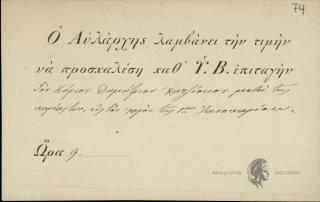 74
Ὁ Αὐλάρχης λαμβάνει τὴν τιμὴν
νὰ προσκαλέσῃ καθ' Ὑ. Β. ἐπιταγὴν
τὸν Κύριον μετὰ τῆς
κυρίας του, εἰς τὸν χορὸν τῆς 1ης Ἰανουαρίου
Ὥρα 9.